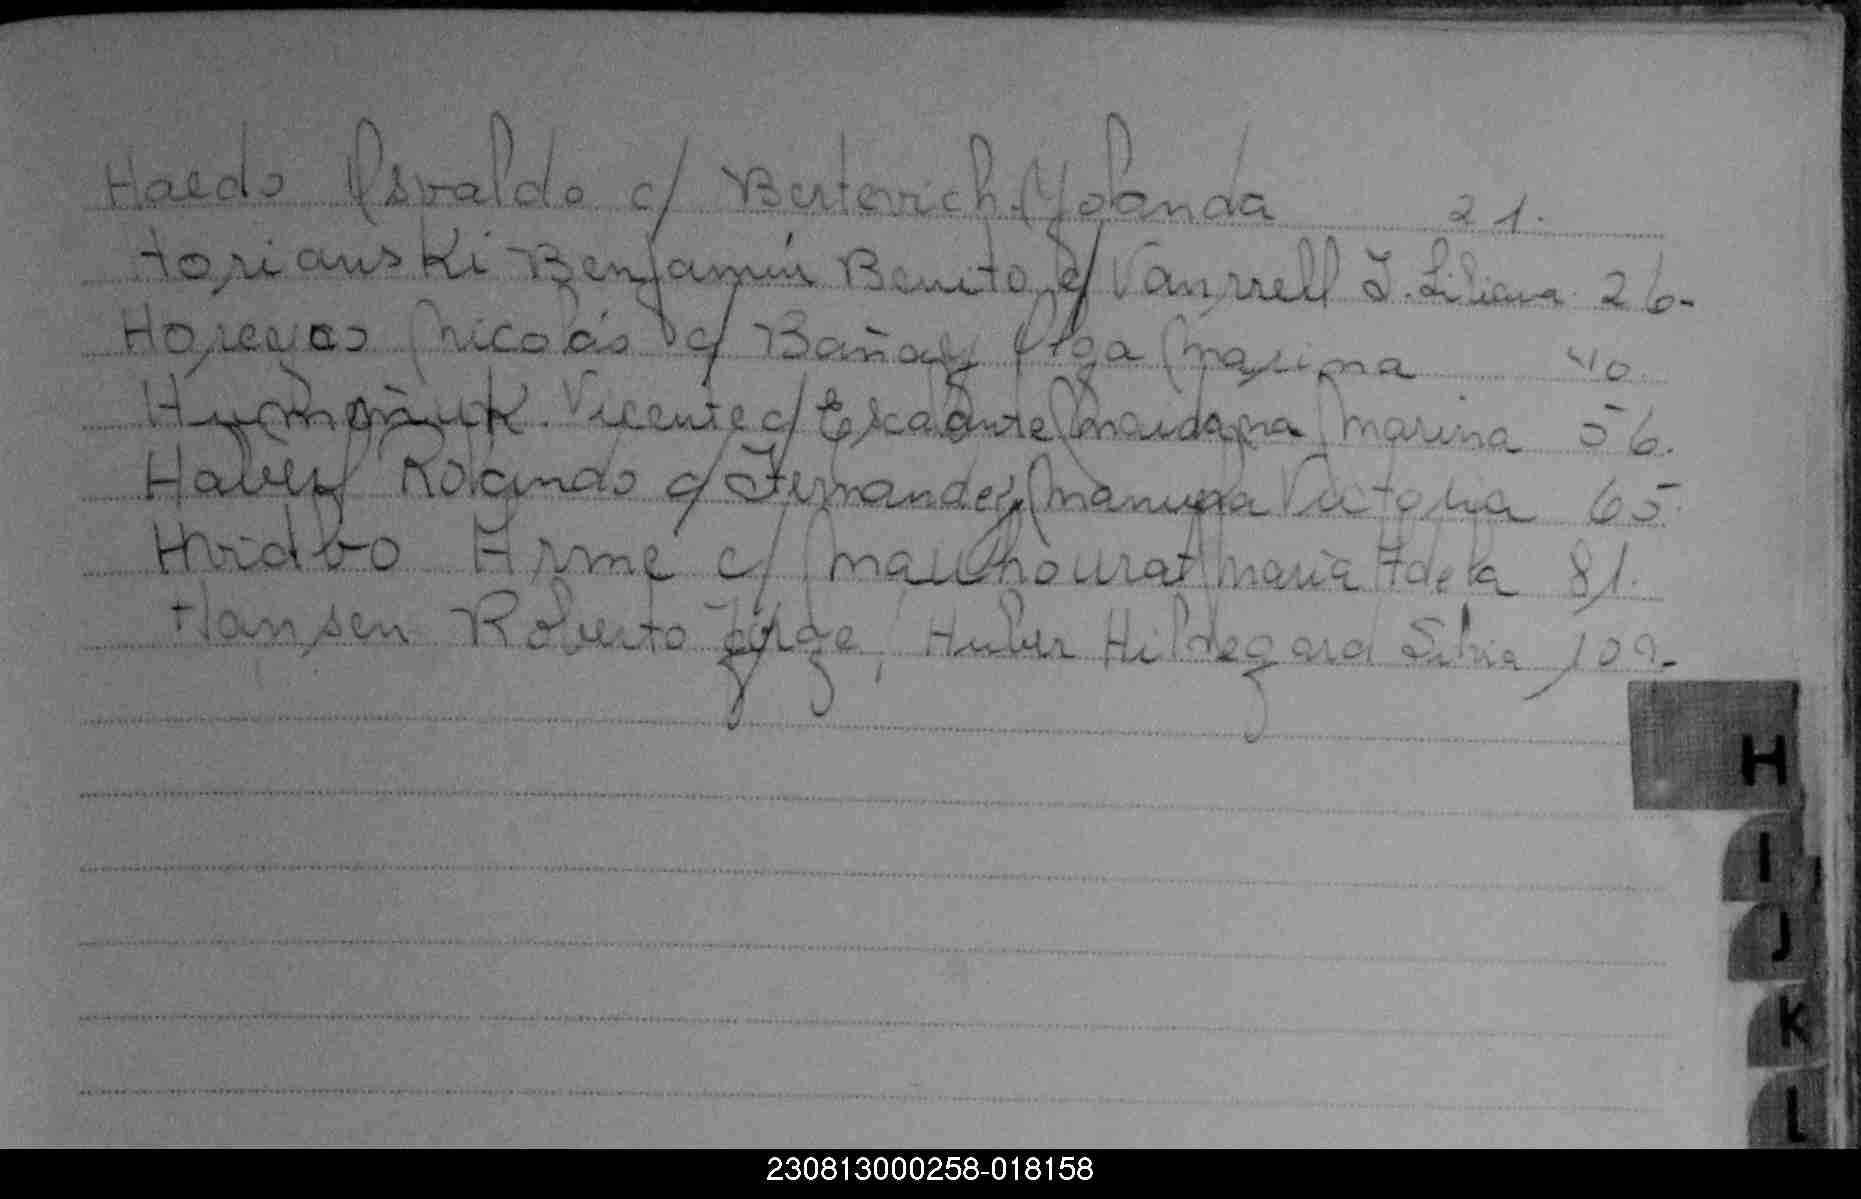 Haedo Osvaldo c/ Berterrich Yolanda 21.
Horianski Benjamín Benito c/ Vanrrell I. Liliana 26-
Horeyos Nicolás c/ Bañay Olga Marina 40
Vicente c/ Escalante Maidana Marina 56.
Rolando c/ Fernandez Manuela Victoria 65
Hvidbo Arme c/ Mauhourat Maria Adela 81.
Hansen Roberto Jorge, Huber Hildegard Silvia 109-
H
I
J
K
L
230813000258-018158